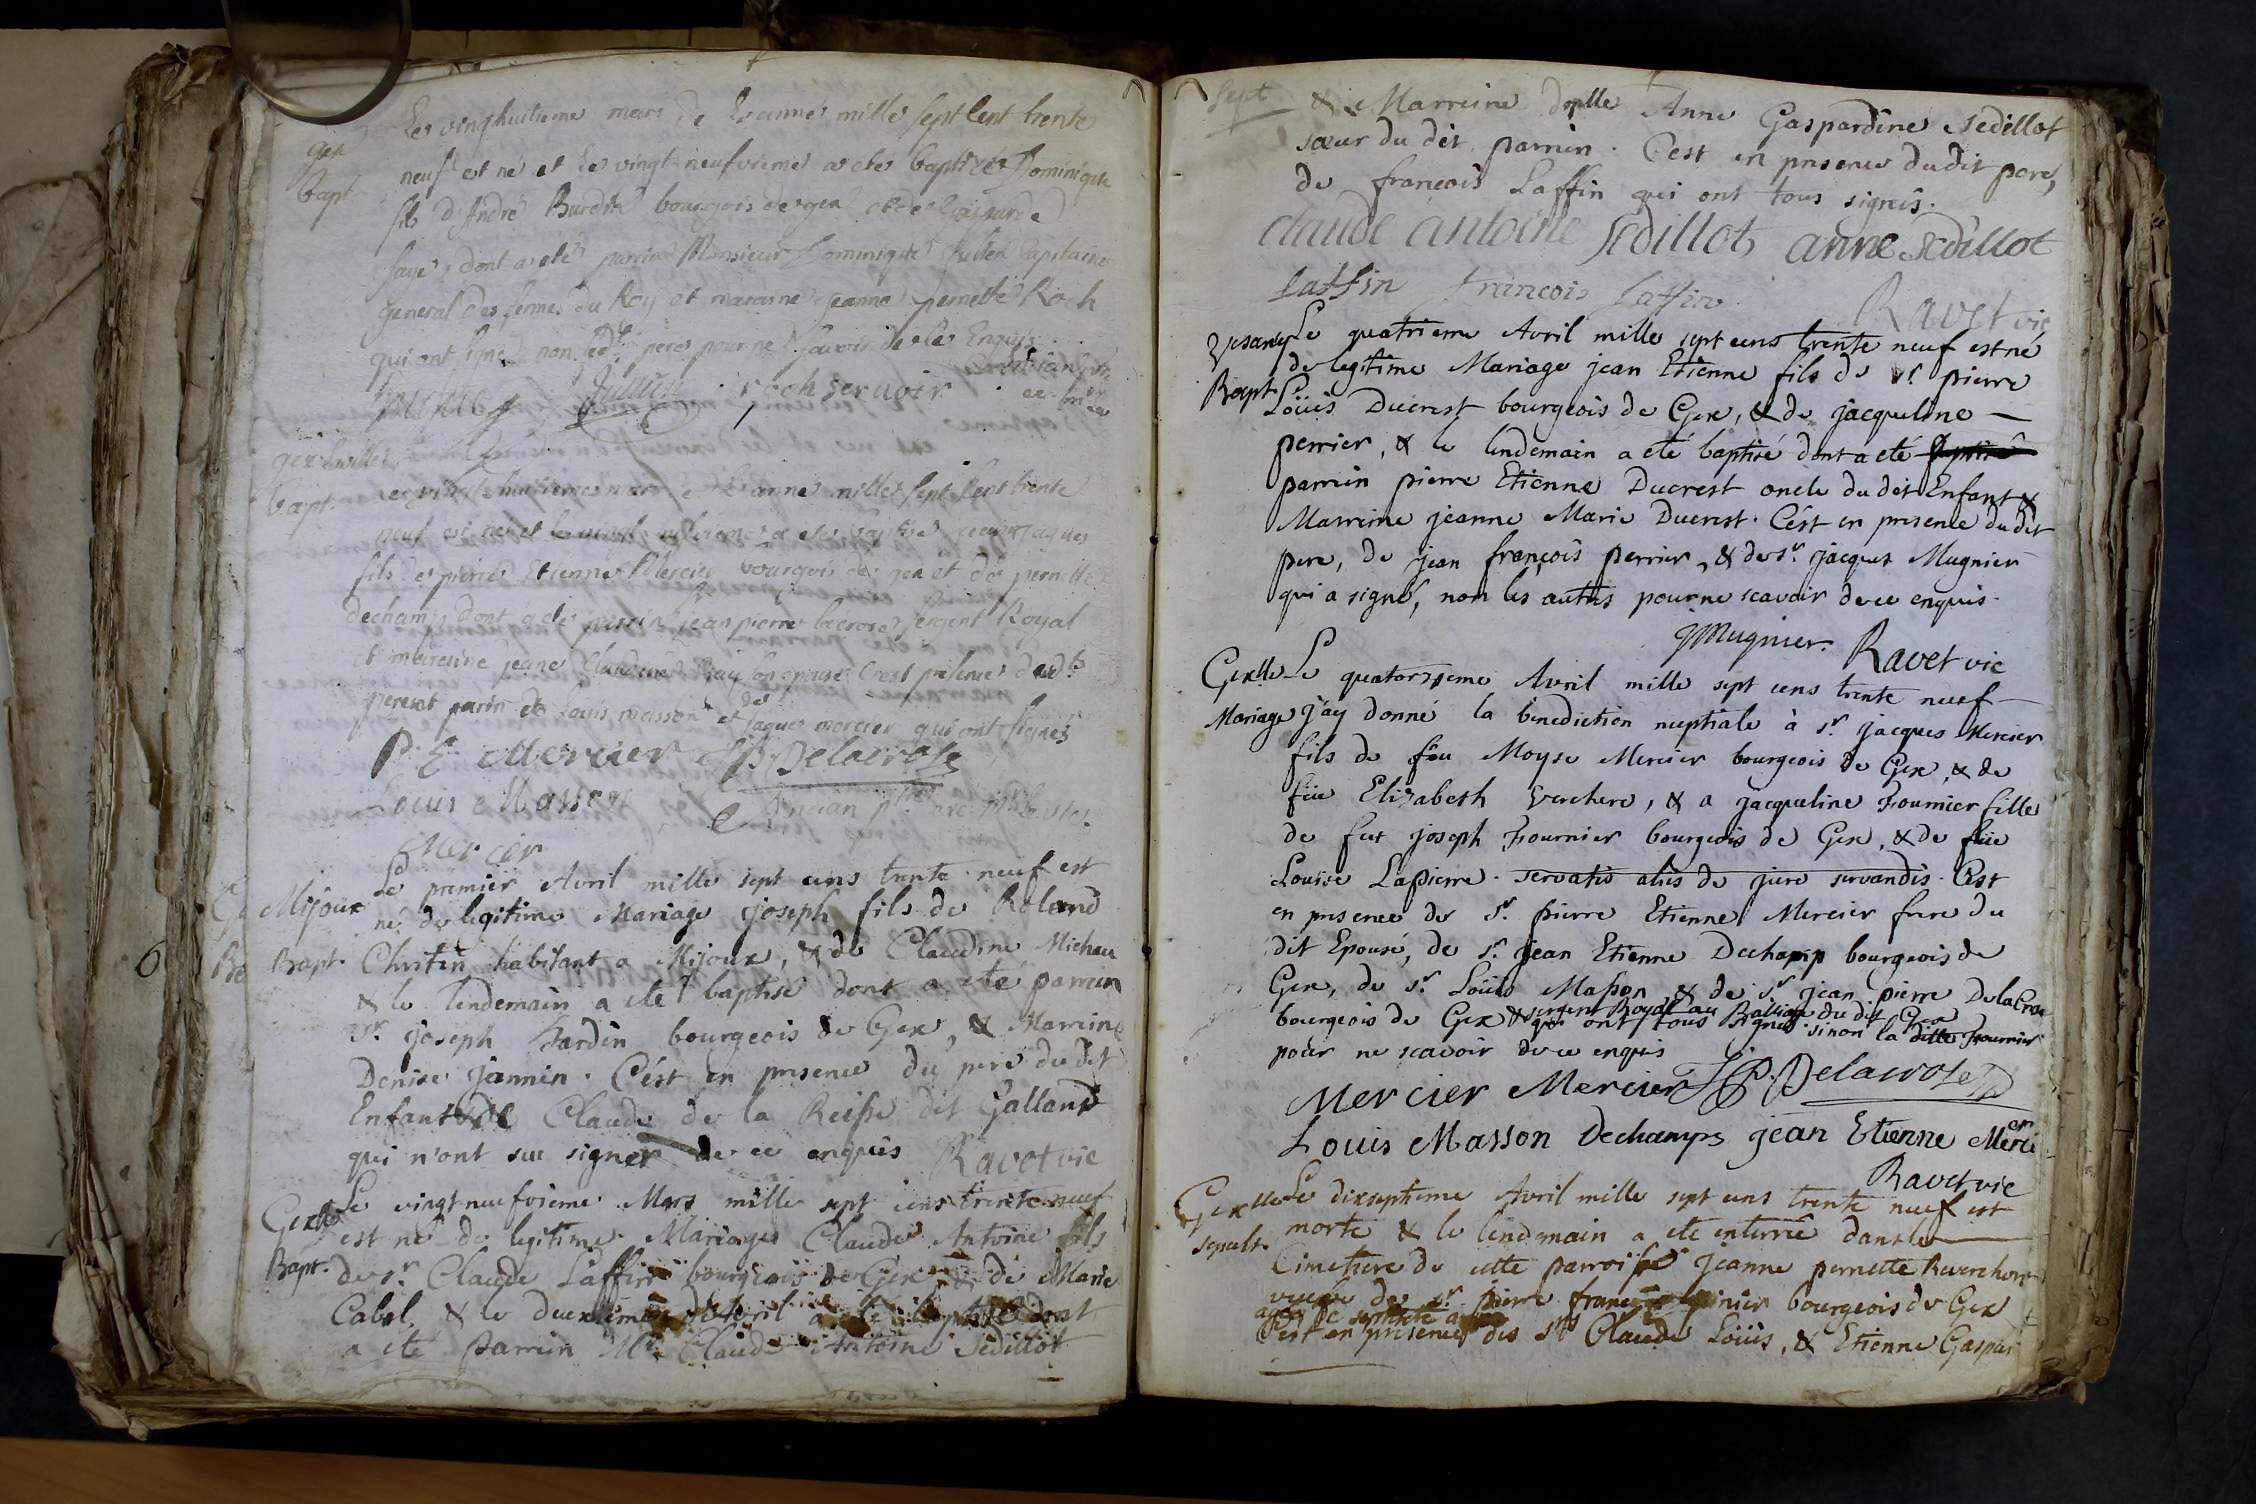 gex
bapt
Le vinghuitieme mars de L'annee mille sept Cent trente
neuf est né et le vingt neufvieme a etez baptizé Dominique
fils d'André Burdin bourgeois de gex et de
faye, dont a eté parrin Monsieur Dominique Capitaine
general des fermes du Roy et maraine jeanne pernette Roch
qui ont signé non led. pere pour ne sçavoir de ce Enquis
roch servoir
gex la ville
bapt.
Le vingt huitieme mars de L'anne mille sept Cent trente
neuf est né et le vingt neufvieme a etez baptise jean jaques
fils de pierre Etienne Mercier bourgois de gex et de pernette
dechamps dont a eté parrin jean pierre lacrose sergent Royal
et mareine jeane Claudine son epouse C'est presence dud.
pere et parin de Louis masson et de jaque mercier qui ont signés
P. E. Mercier JP. Delacrose
Louis Masson
Mercier
Mijoux
Bapt.
Le premier Avril mille sept cens trente neuf est
né de legitime Mariage joseph fils de Roland
Christin habitant a Mijoux, & de Claudine Michau
& le lendemain a eté baptisé dont a eté parrin
Sr. joseph Jardin bourgeois de Gex, & Marreine
Denise jannin. C'est en presence du pere du dit
Enfant & de Claude de la Reisse dit Galland
qui n'ont sue signer de ce enquis Ravet vic
Gexlle
Bapt.
Le vingt neufvieme Mars mille sept cens trente neuf
est né de legitime Mariage Claude Antoine fils
de sr. Claude Laffin bourgeois de Gex & de Marie
Cabol, & le deuxieme d'Avril a eté baptisé dont
a eté parrin Mr. Claude Antoine Sedillot
Sept
& Marreine dlle Anne Gaspardine Sedillot
sœur du dit parrin. C'est en presence du dit pere,
de françois Laffin qui ont tous signés.
claude antoine sedillot anne sedillot
laffin francois laffin Ravet vic
Vesancy
Bapt.
Le quatrieme Avril mille sept cens trente neuf est né
de legitime Mariage jean Etienne fils de sr. pierre
Loüis Ducrest bourgeois de Gex, & de jacqueline
perrier, & le lendemain a eté baptisé dont a eté
parrin pierre Etienne Ducrest oncle du dit Enfant &
Marreine jeanne Marie Ducrest. C'est en presence du dit
pere, de jean françois perrier, & de sr. jacques Mugnier
qui a signé, non les autres pour ne scavoir de ce enquis.
JMugnier. Ravet vic
Gexlle
Mariage
Le quatorzieme Avril mille sept cens trente neuf
j'ay donné la benediction nuptiale à sr. jacques Mercier
fils de feu Moyse Mercier bourgeois de Gex, & de
füe Elizabeth Verchere, & a jacqueline Fournier fille
de fut joseph Fournier bourgeois de Gex, & de füe
Louise Lapierre. servatis aliis de jure servandis. C'est
en presence de sr. pierre Etienne Mercier frere du
dit Epousé, de sr. jean Etienne Dechamp bourgeois de
Gex, de sr. Loüis Masson & de sr. jean pierre DelaCrose
bourgeois de Gex & sergent Royal au Balliage du dit Gex
qui ont tous signés sinon la ditte Fournier
pour ne scavoir de ce enquis
Mercier Mercier JP. Delacrose
Louis Masson Dechamps jean Etienne Mercier
Ravet vic
Gexlle
sepult.
Le dixseptieme Avril mille sept cens trente neuf est
morte & le lendemain a eté enterrée dans le
Cimetiere de cette parroisse jeanne pernette Reverchon
veuve de sr. pierre françois bourgeois de Gex
C'est en presence des srs Claude Loüis, & Etienne Gaspar